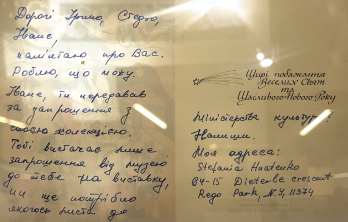 Дорогі Ірино, Стефо,
Іване,
пам'ятаю про Вас.
Роблю, що можу.
Іване, ти передавав
за запрошення з
своєю колекцією.
Тобі вистачає лише
запрошення від музею
до тебе на виставку,
чи ще потрібно
якогось листа до
Щирі побажання
Веселих Свят
та
Щасливого Нового Року
Міністерства культури?
Напиши.
Моя адреса:
Stefania
84-15 Dieterle crescent
Rego Park, N.Y. 11374